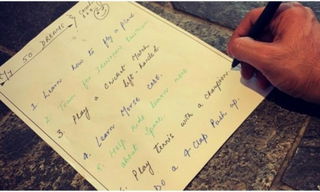 My 50 DREAMS
1. Learn how to fly a plane
2. Train for
3. Play a Cricket Match
left handed
4. Learn Morse code.
5. Help kids learn more
about space.
6. Play Tennis with a champion
Do a 4 Clap Push up.